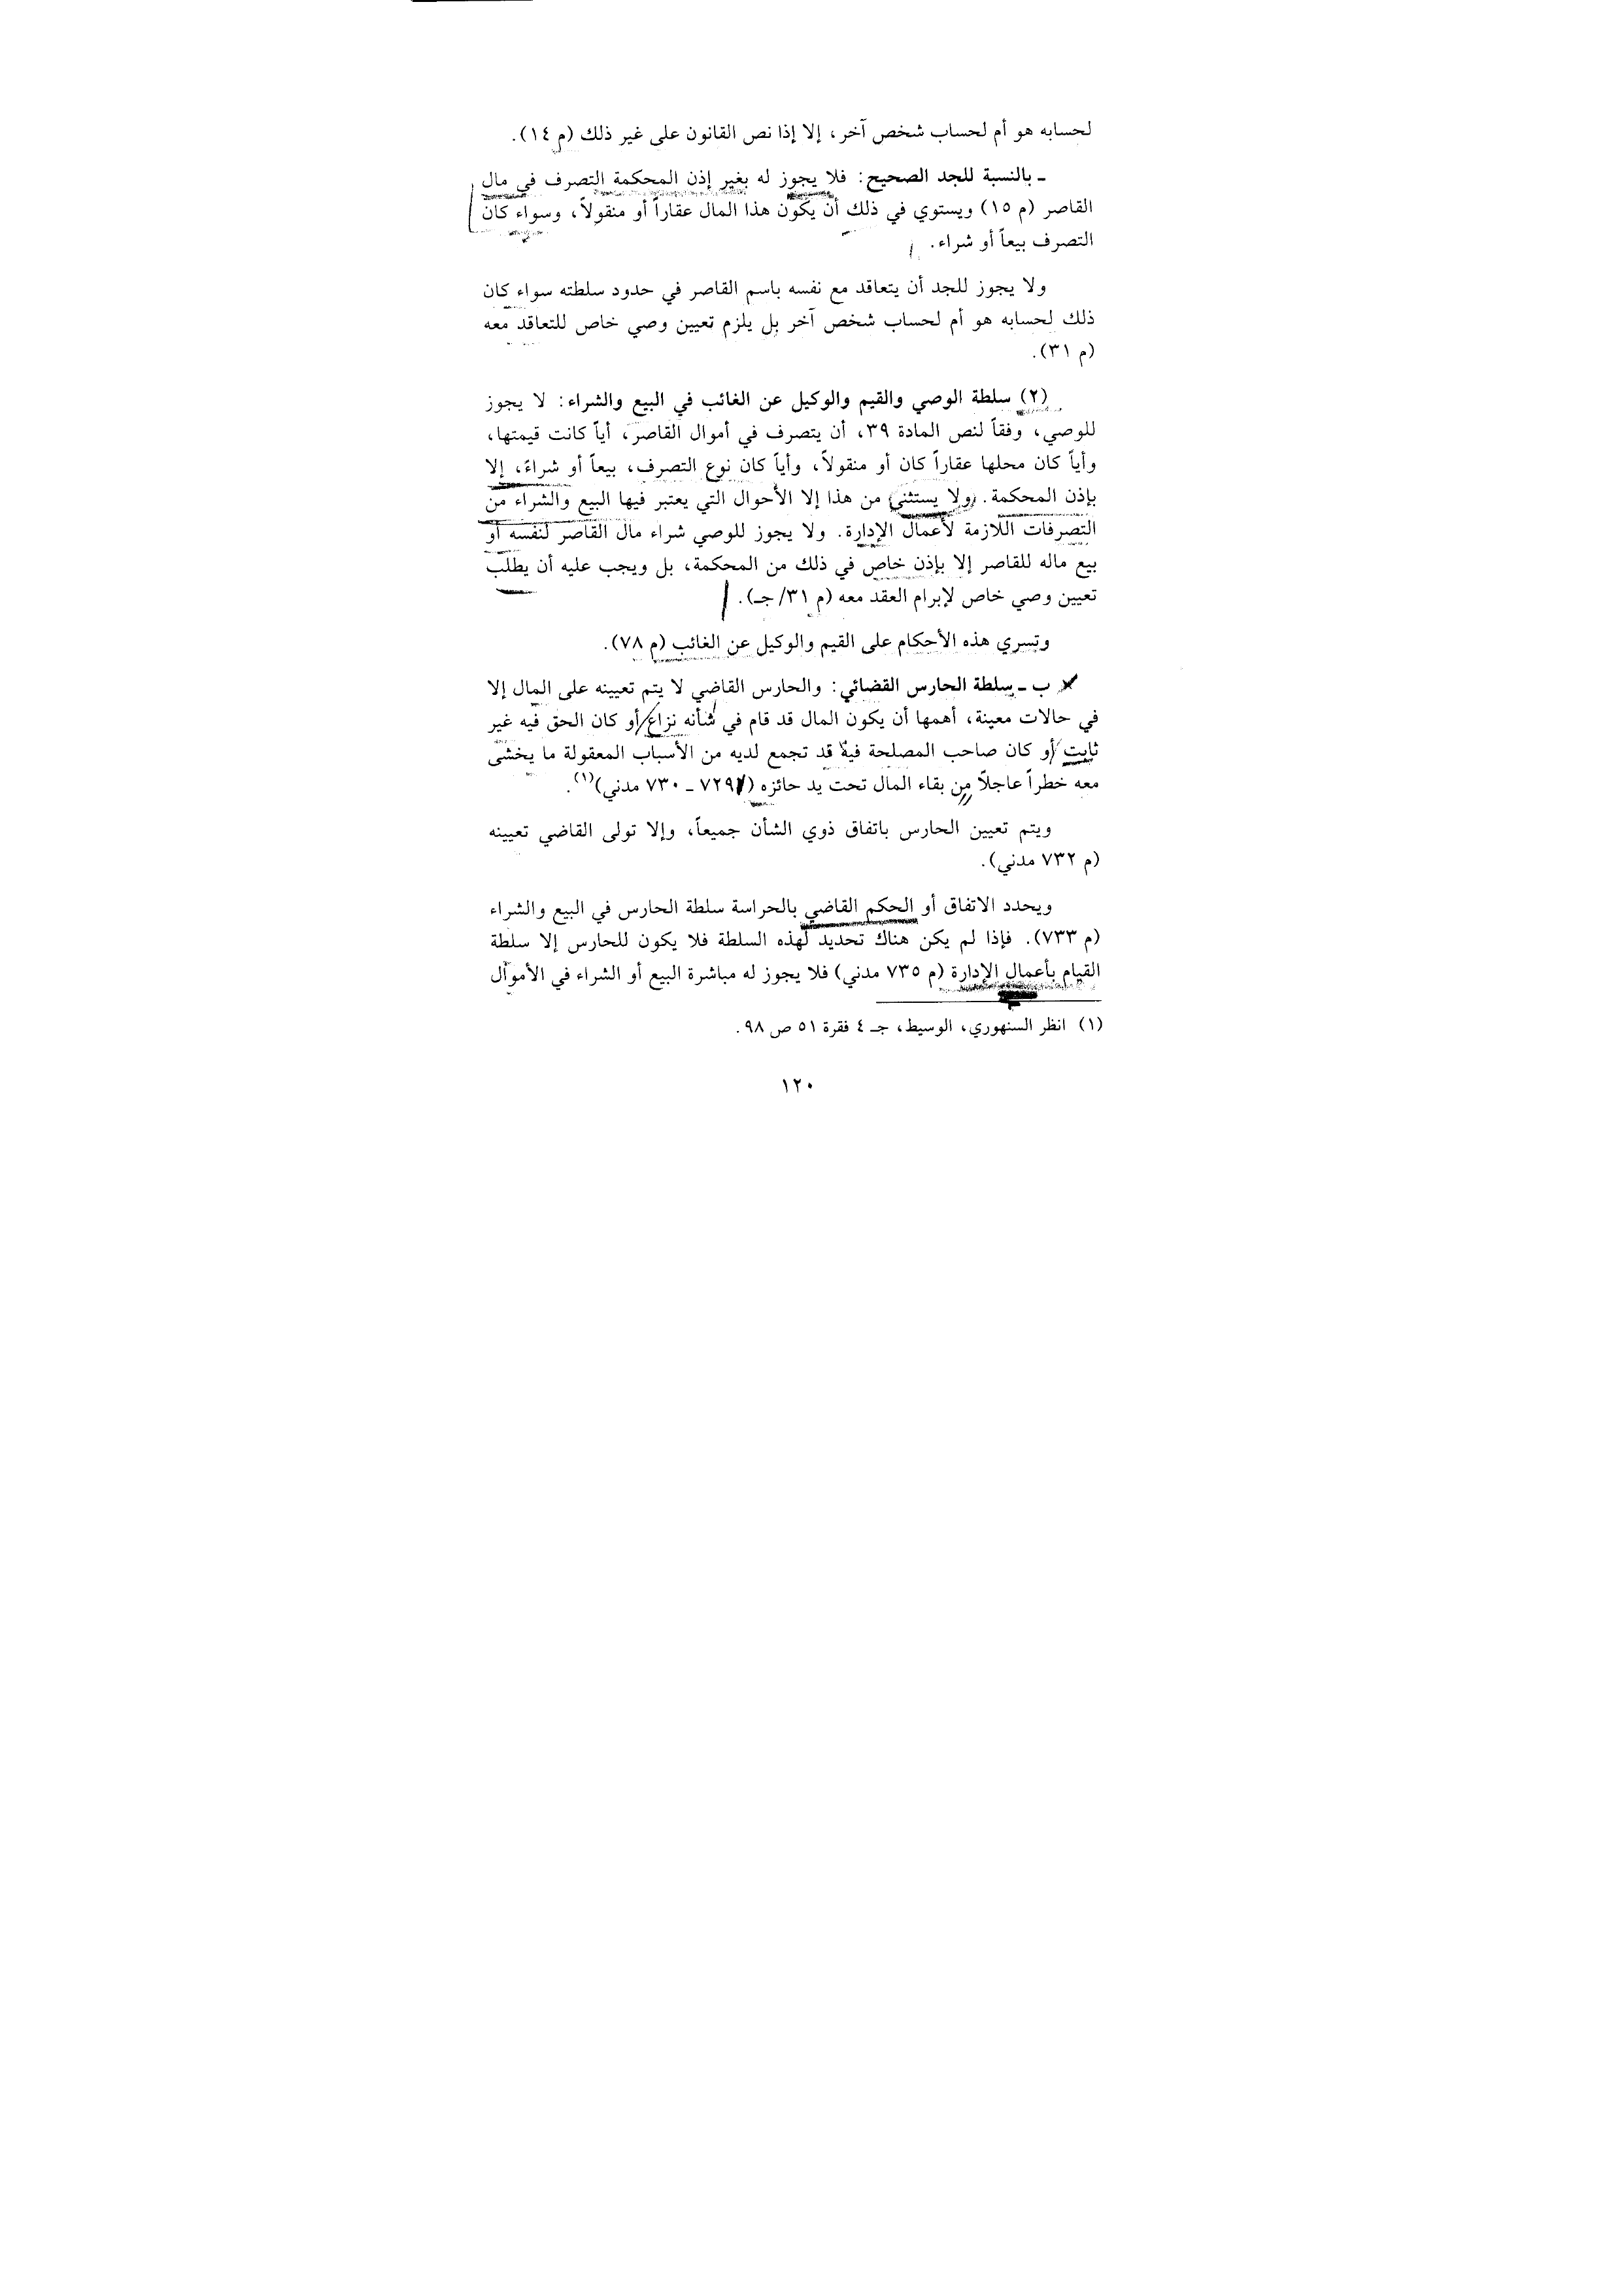 لحسابه هو أم لحساب شخص آخر، إلا إذا نص القانون على غير ذلك (م ١٤).
ـ بالنسبة للجد الصحيح: فلا يجوز له بغير إذن المحكمة التصرف في مال
القاصر (م ١٥) ويستوي في ذلك أن يكون هذا المال عقاراً أو منقولاً، وسواء كان
التصرف بيعاً أو شراء.
ولا يجوز للجد أن يتعاقد مع نفسه باسم القاصر في حدود سلطته سواء كان
ذلك لحسابه هو أم لحساب شخص آخر بل يلزم تعيين وصي خاص للتعاقد معه
(م ٣١).
(٢) سلطة الوصي والقيم والوكيل عن الغائب في البيع والشراء: لا يجوز
للوصي، وفقاً لنص المادة ٣٩، أن يتصرف في أموال القاصر، أياً كانت قيمتها،
وأياً كان محلها عقاراً كان أو منقولاً، وأياً كان نوع التصرف، بيعاً أو شراءً، إلا
بإذن المحكمة. ولا يستثنى من هذا إلا الأحوال التي يعتبر فيها البيع والشراء من
التصرفات اللازمة لأعمال الإدارة. ولا يجوز للوصي شراء مال القاصر لنفسه أو
بيع ماله للقاصر إلا بإذن خاص في ذلك من المحكمة، بل ويجب عليه أن يطلب
تعيين وصي خاص لإبرام العقد معه (م ٣١/ جـ).
وتسري هذه الأحكام على القيم والوكيل عن الغائب (م ٧٨).
ب ـ سلطة الحارس القضائي: والحارس القاضي لا يتم تعيينه على المال إلا
في حالات معينة، أهمها أن يكون المال قد قام في شأنه نزاع أو كان الحق فيه غير
ثابت أو كان صاحب المصلحة فيه قد تجمع لديه من الأسباب المعقولة ما يخشى
معه خطراً عاجلاً من بقاء المال تحت يد حائزه (٧٢٩ ـ ٧٣٠ مدني)(١).
ويتم تعيين الحارس باتفاق ذوي الشأن جميعاً، وإلا تولى القاضي تعيينه
(م ٧٣٢ مدني).
ويحدد الاتفاق أو الحكم القاضي بالحراسة سلطة الحارس في البيع والشراء
(م ٧٣٣). فإذا لم يكن هناك تحديد لهذه السلطة فلا يكون للحارس إلا سلطة
القيام بأعمال الإدارة (م ٧٣٥ مدني) فلا يجوز له مباشرة البيع أو الشراء في الأموال
(١) انظر السنهوري، الوسيط، جـ ٤ فقرة ٥١ ص ٩٨.
١٢٠